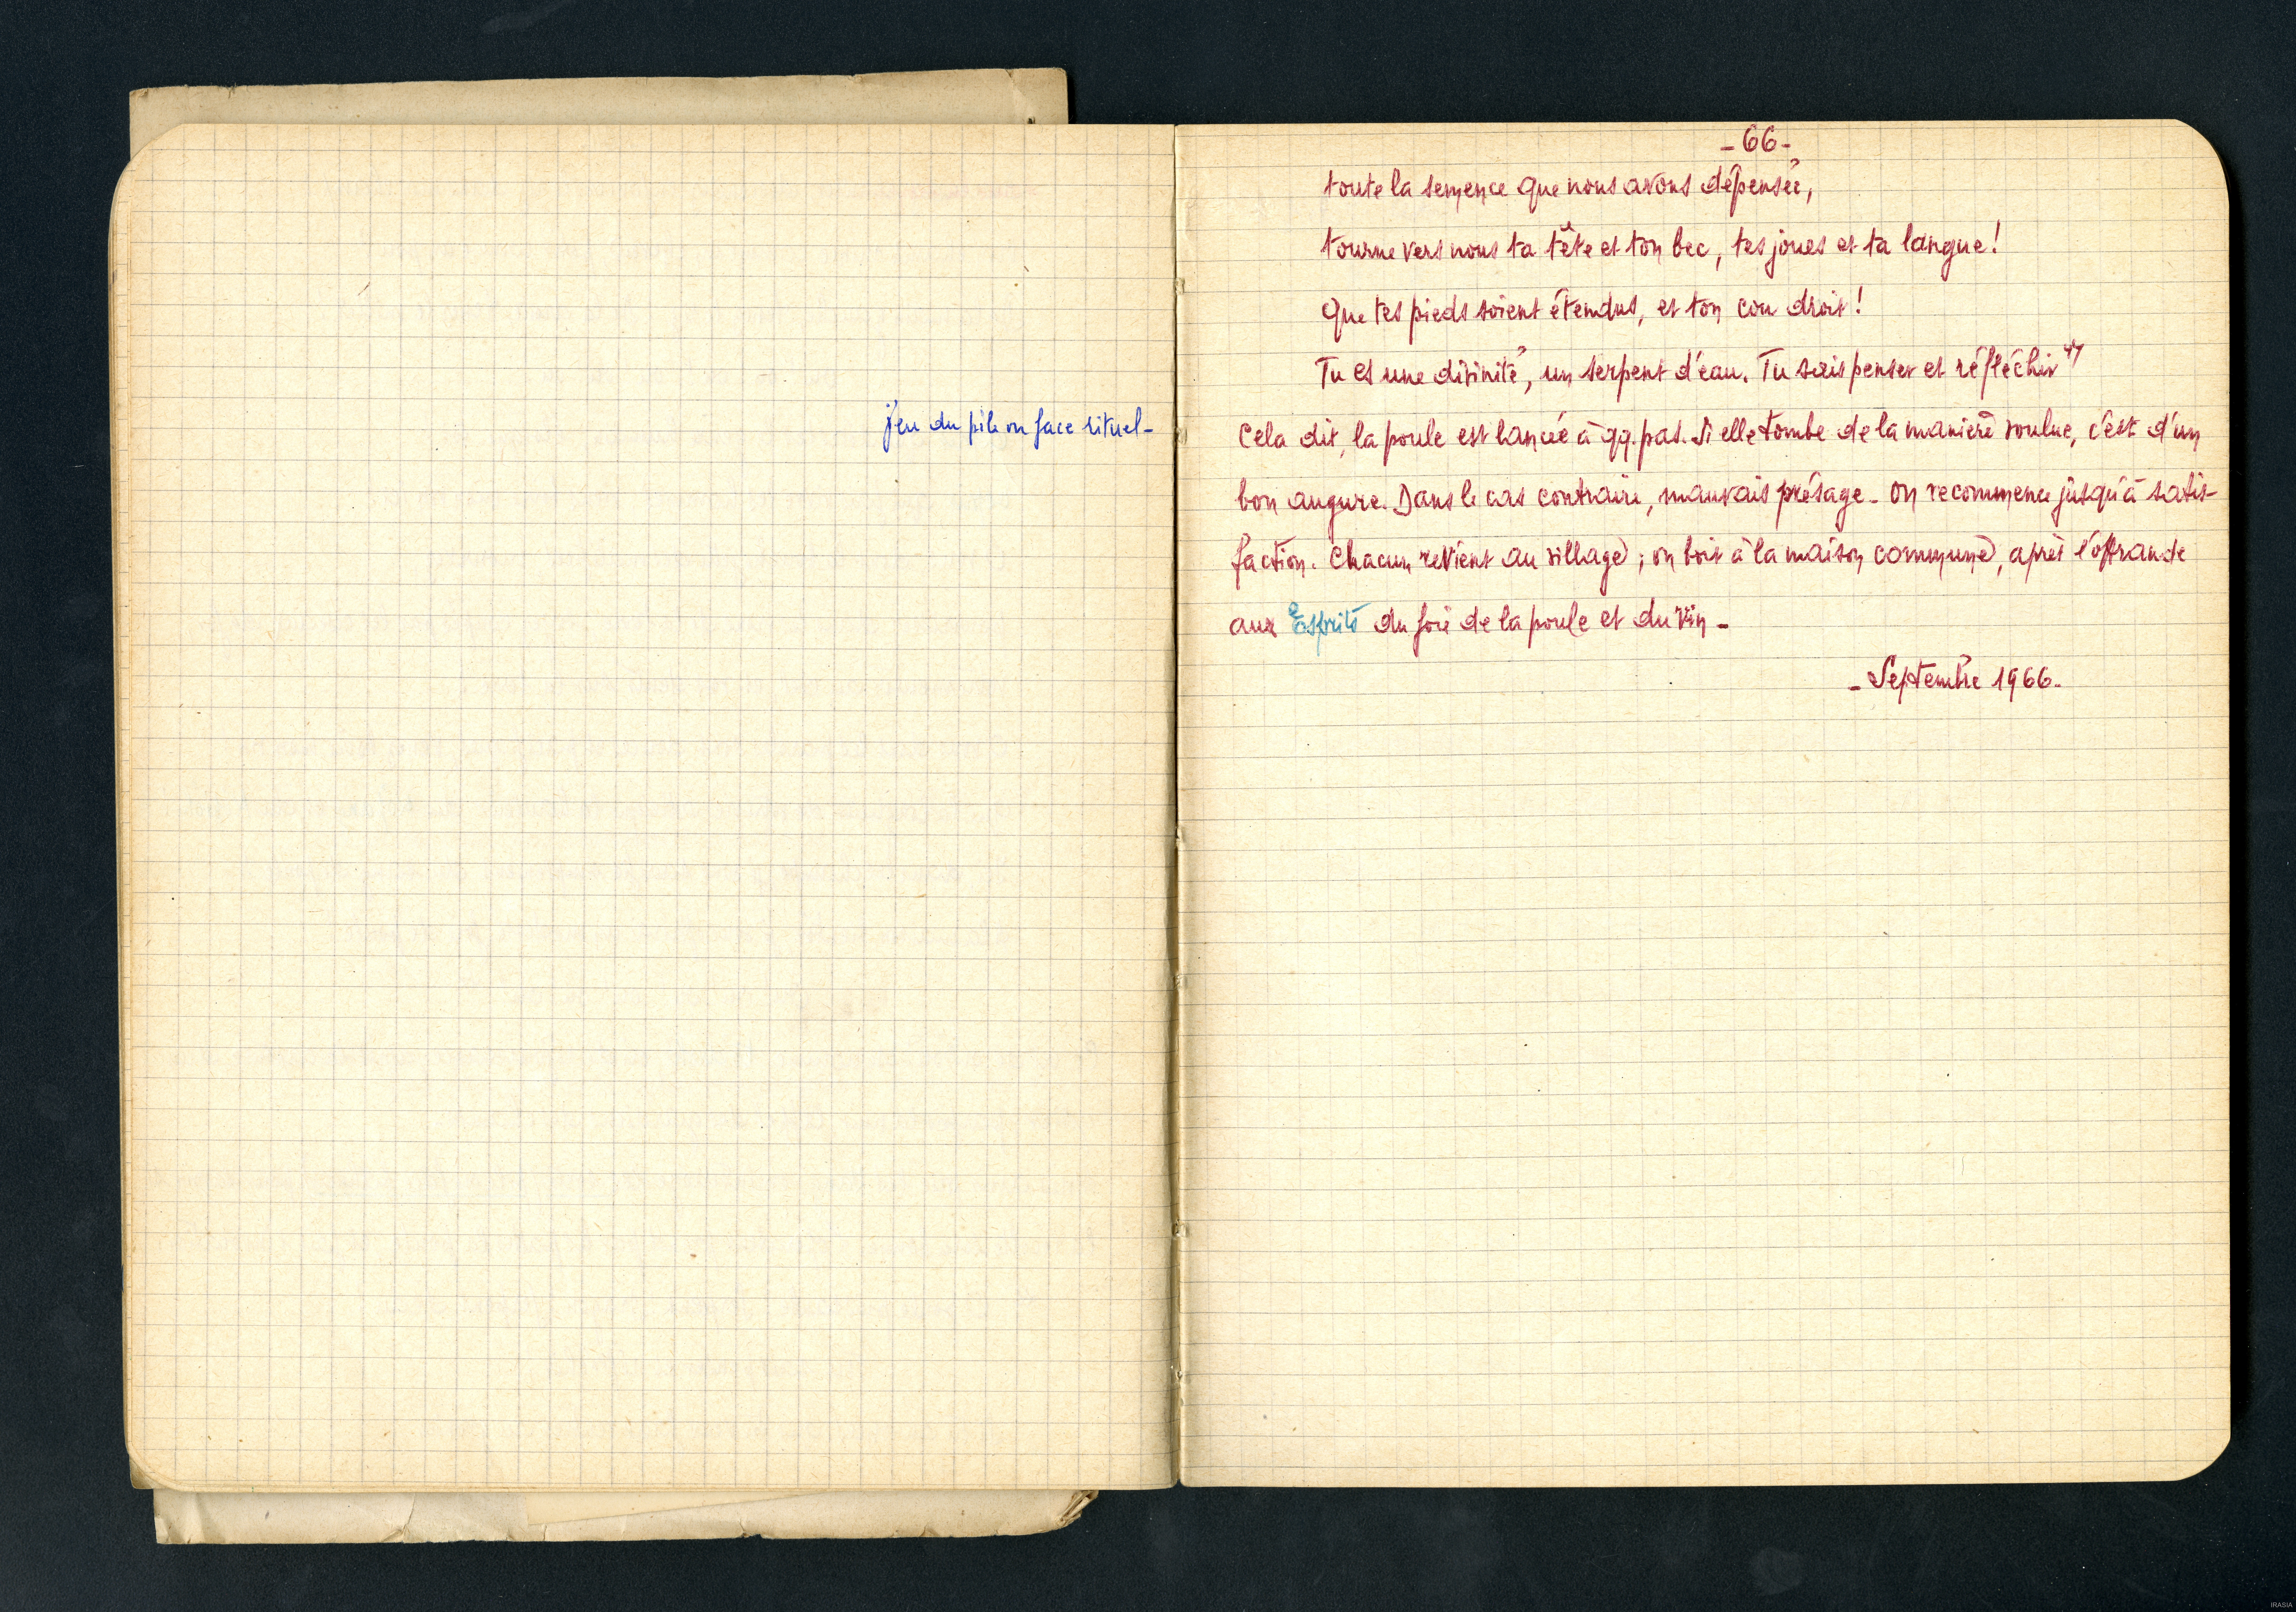 jeu du pile ou face rituel-
- 66 -
toute la semence que nous avons dépensée,
tourne vers nous ta tête et ton bec, tes joues et ta langue !
Que tes pieds soient étendus, et ton cou droit !
Tu es une divinité, un serpent d'eau. Tu sais penser et réfléchir"
Cela dit, la poule est lancée à qq. pas. Si elle tombe de la manière voulue, c'est d'un
bon augure. Dans le cas contraire, mauvais présage - On recommence jusqu'à satis-
faction. Chacun revient au village ; on boit à la maison commune, après l'offrande
aux esprits du foie de la poule et du vin -
- Septembre 1966.
IRASIA